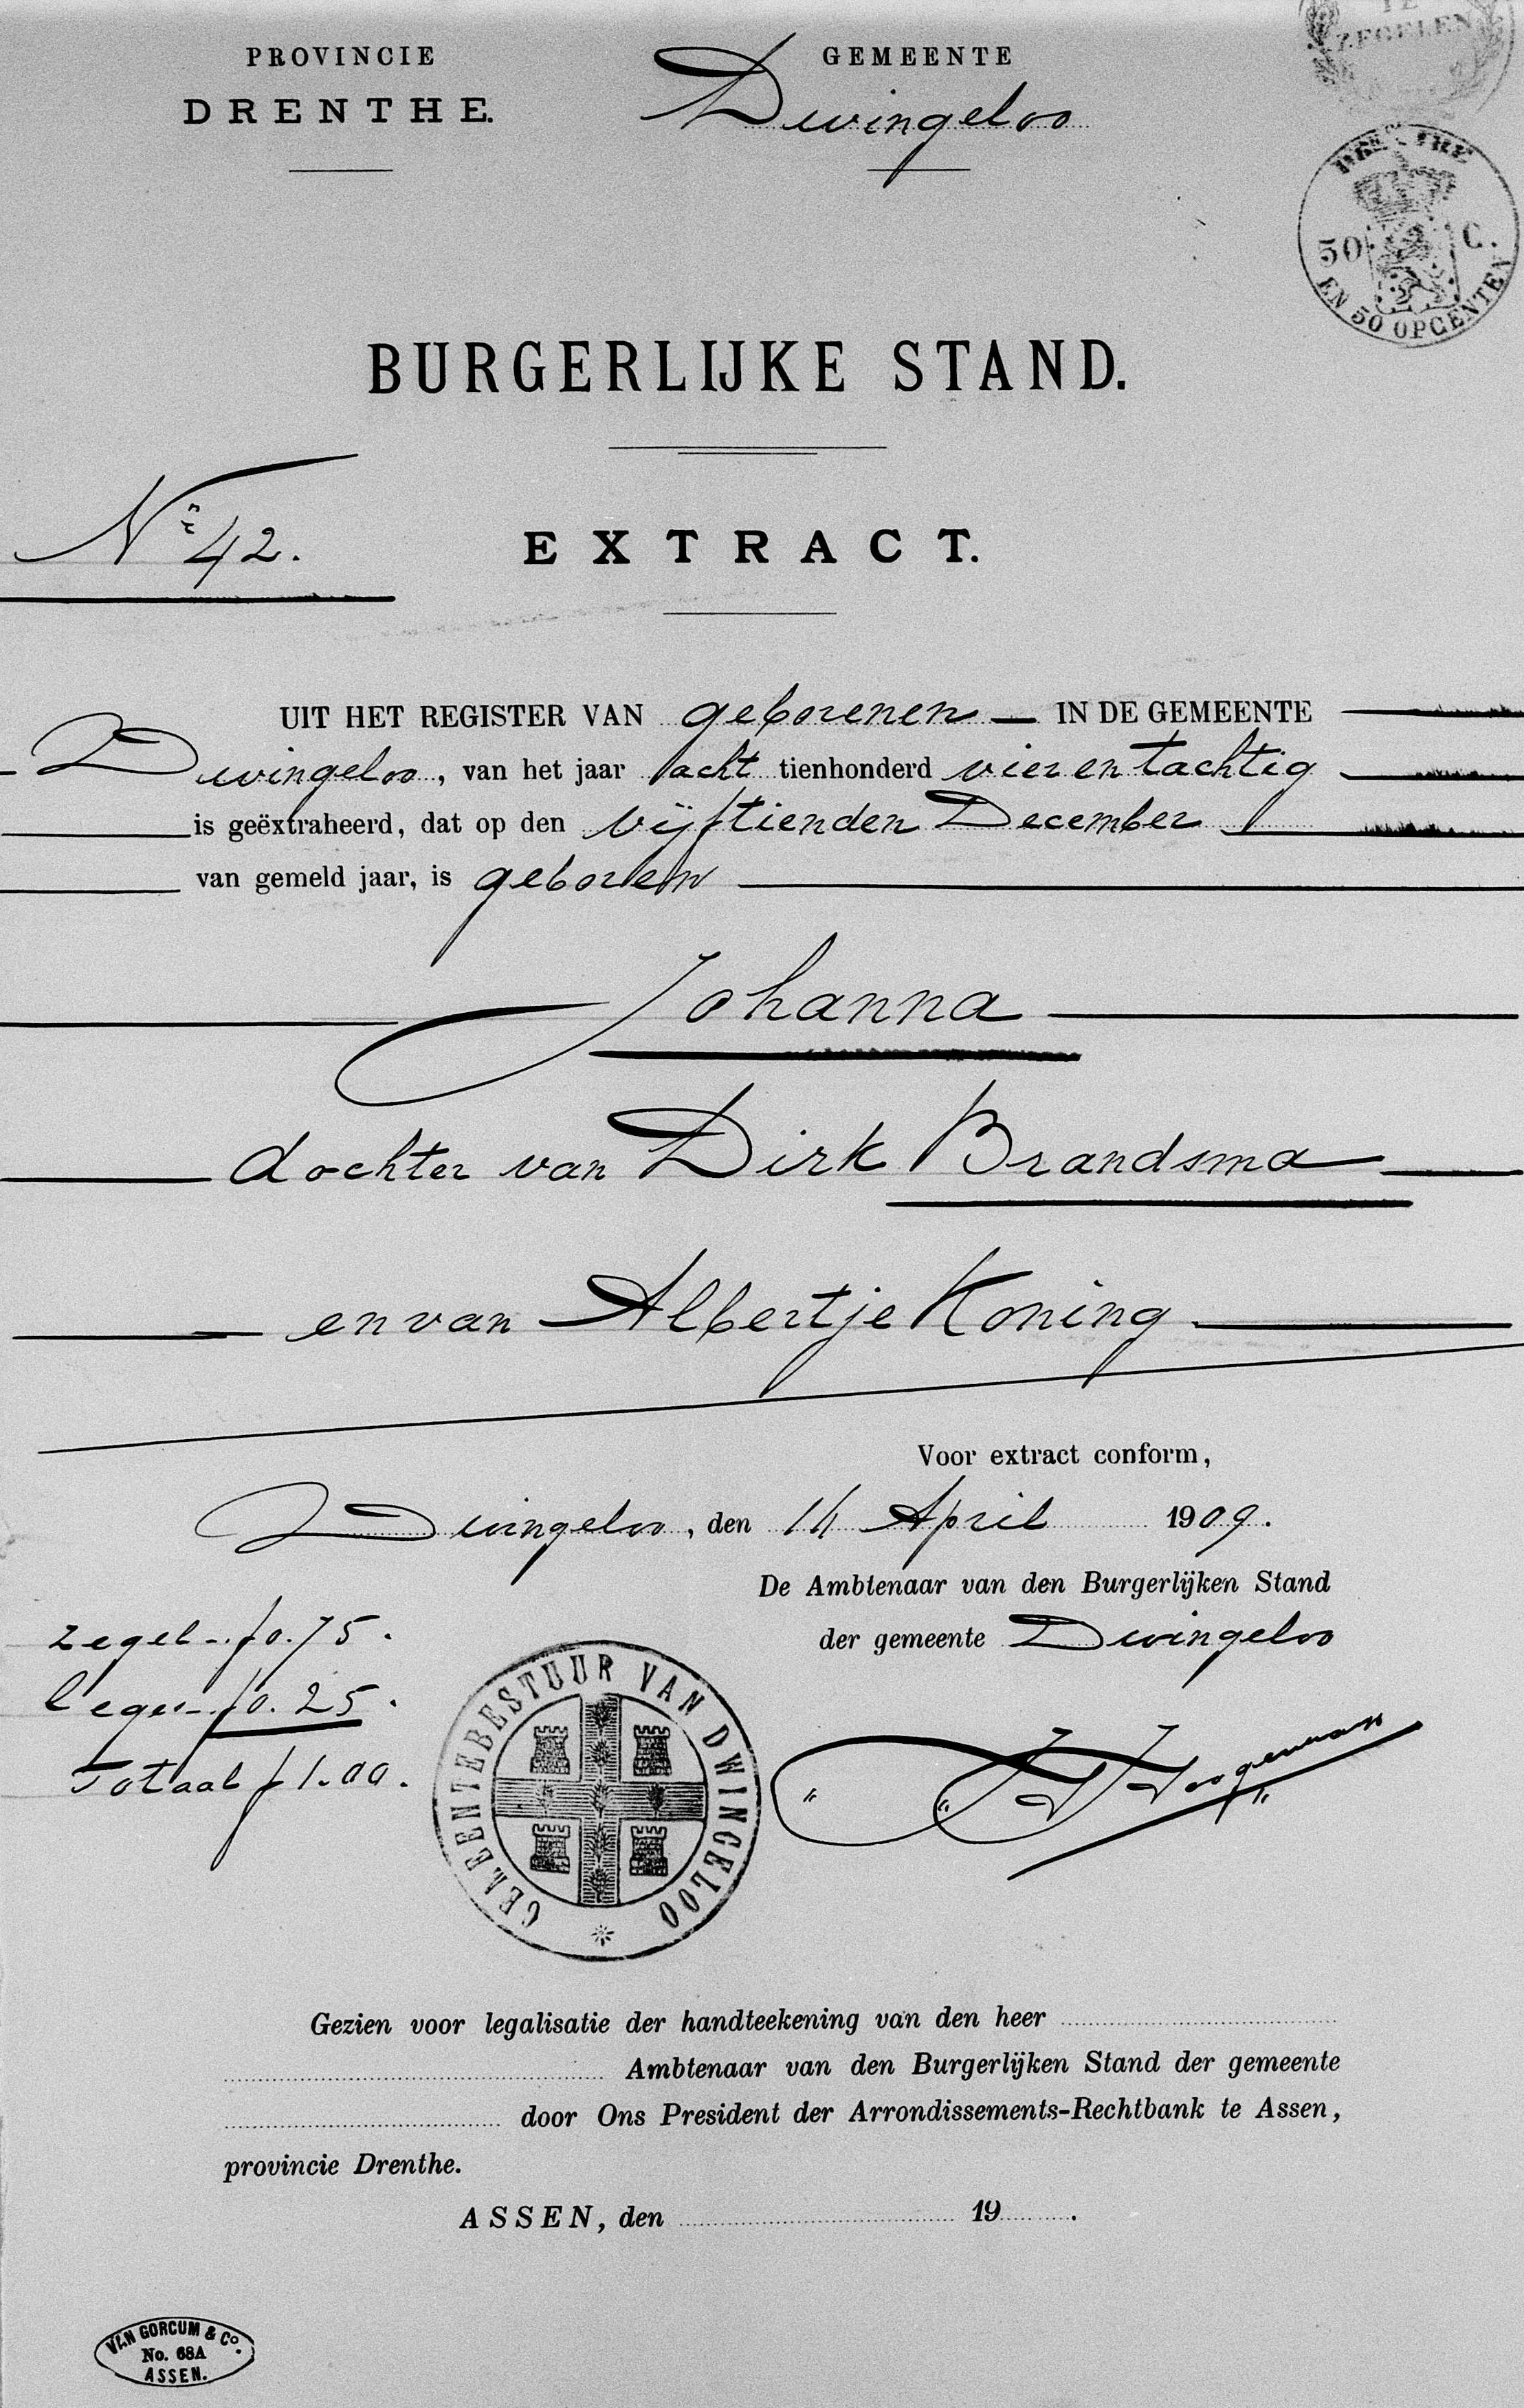 PROVINCIE
DRENTHE.
GEMEENTE
Dwingeloo
TE ZEGELEN
DRENTHE
50 C.
EN 50 OPCENTEN
BURGERLIJKE STAND.
No 42.
EXTRACT.
UIT HET REGISTER VAN geborenen IN DE GEMEENTE
Dwingeloo, van het jaar acht tienhonderd vier en tachtig
is geëxtraheerd, dat op den vijftienden December
van gemeld jaar, is geboren
Johanna
dochter van Dirk Brandsma
en van Albertje Koning
Voor extract conform,
Dwingeloo, den 14 April 1909.
De Ambtenaar van den Burgerlijken Stand
der gemeente Dwingeloo
zegel f 0.75.
leges f 0.25.
Totaal f 1.00.
GEMEENTEBESTUUR VAN DWINGELOO
Gezien voor legalisatie der handteekening van den heer
Ambtenaar van den Burgerlijken Stand der gemeente
door Ons President der Arrondissements-Rechtbank te Assen,
provincie Drenthe.
ASSEN, den 19 .
VAN GORCUM & Co.
No. 68A
ASSEN.